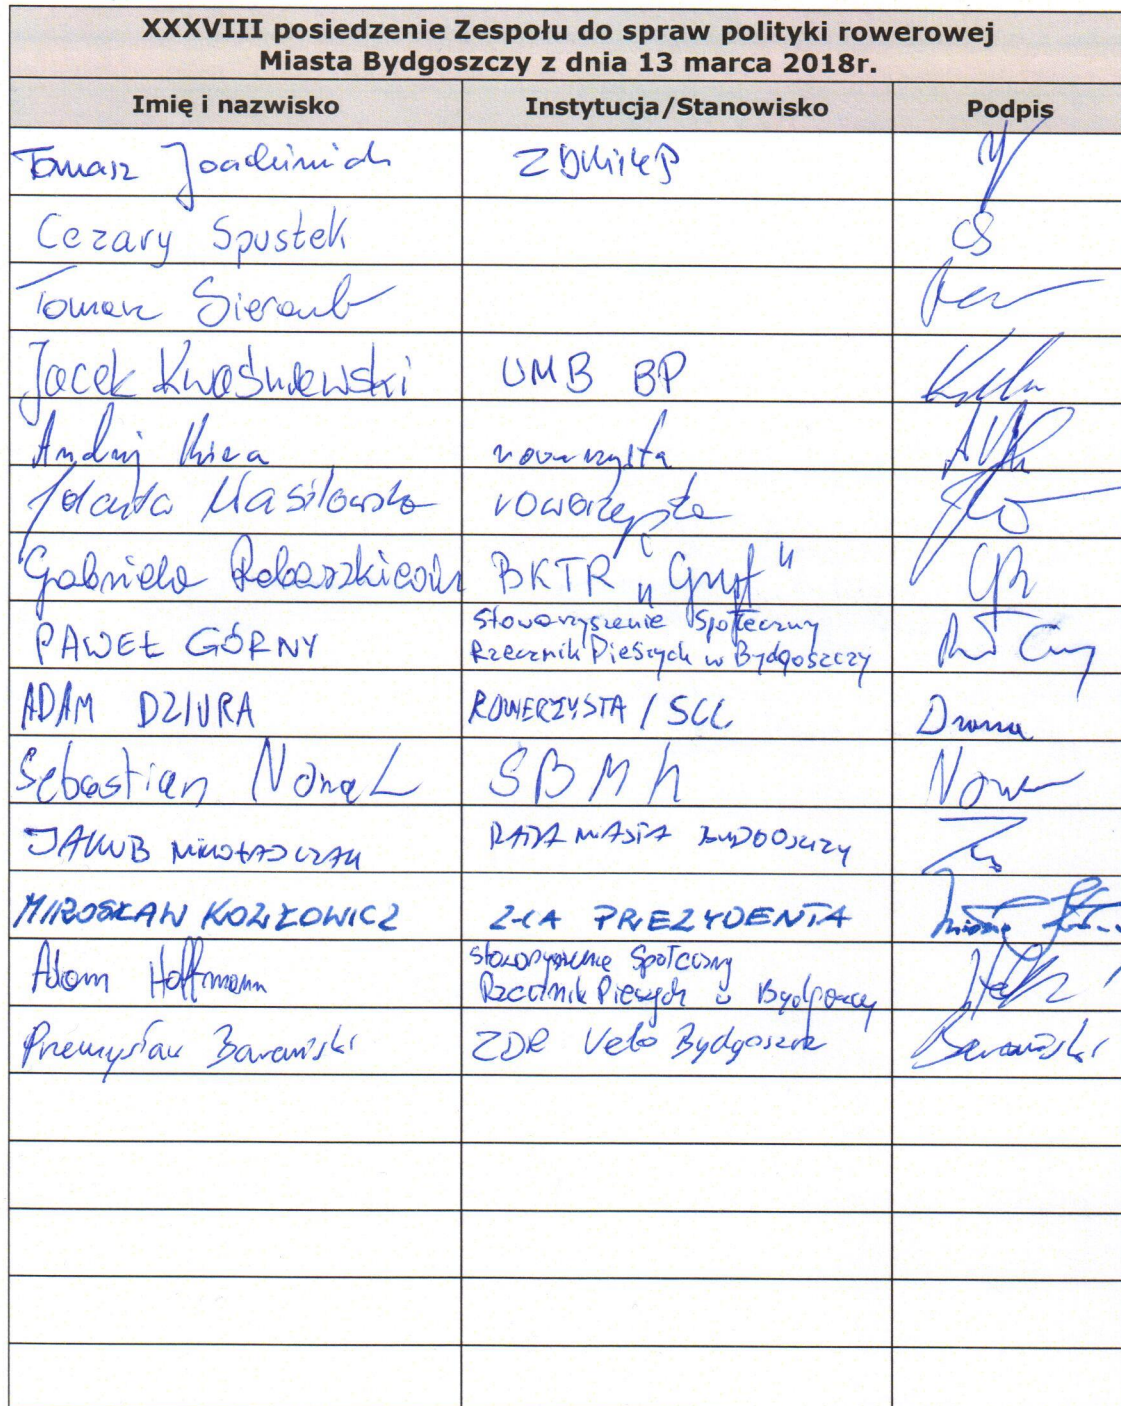 XXXVIII posiedzenie Zespołu do spraw polityki rowerowej
Miasta Bydgoszczy z dnia 13 marca 2018r.
Imię i nazwisko Instytucja/Stanowisko Podpis
Tomasz
Cezary Spustek CS
Tomasz
Jacek Kwaśniewski UMB BP
Andrzej rowerzysta
Jolanta Masłowska rowerzystka
Gabriela BKTR "Gryf" GR
PAWEŁ GÓRNY Stowarzyszenie Społeczny
Rzecznik Pieszych w Bydgoszczy
ADAM DZIURA ROWERZYSTA / SCC
Sebastian Nowak SBMK
JAKUB MIKOŁAJCZAK RADA MIASTA BYDGOSZCZY
MIROSŁAW KOZŁOWICZ Z-CA PREZYDENTA
Adam Hoffmann Stowarzyszenie Społeczny
Rzecznik Pieszych w Bydgoszczy
Przemysław Barański ZDR Velo Bydgoszcz Barański